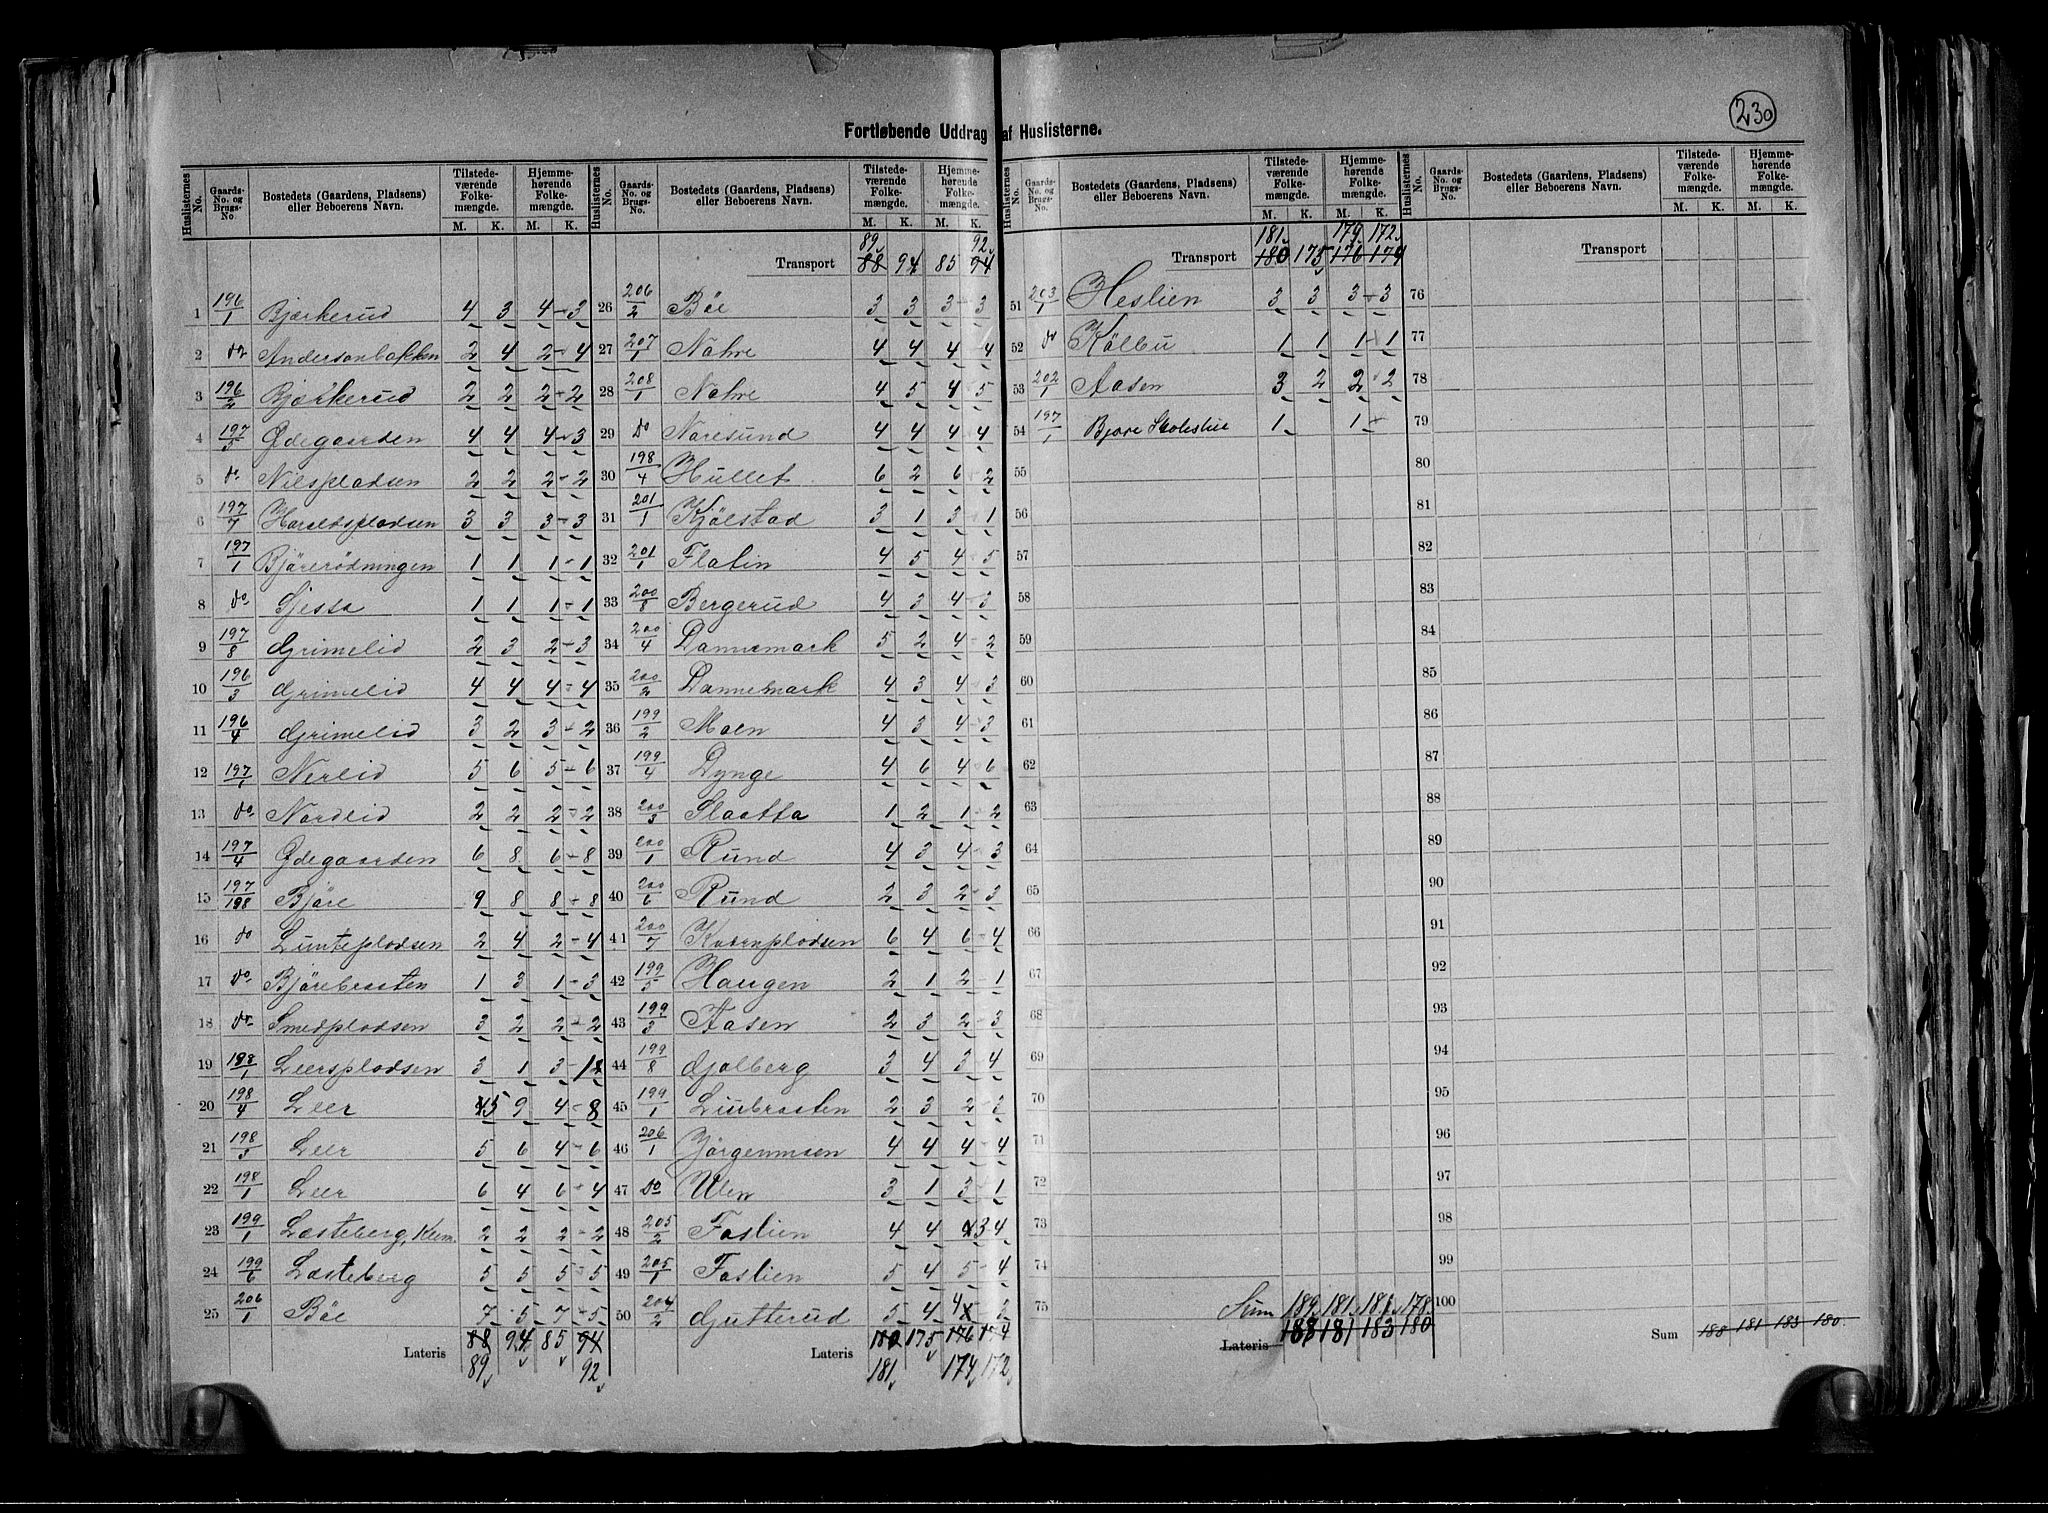 230
Fortløbende Uddrag af Huslisternes.
Huslisternes No. Gaards-No. og Brugs-No. Bostedets (Gaardens, Pladsens) eller Beboerens Navn. Tilstedeværende Folkemængde. M. K. Hjemmehørende Folkemængde. M. K.
1 196/1 Bjærkerud 4 3 4 - 3
2 do Andersonbakken 2 4 2 - 4
3 196/2 Bjærkerud 2 2 2 - 2
4 197/5 Ødegaarden 4 4 4 - 3
5 do Nilspladsen 2 2 2 - 2
6 197/7 Haraldspladsen 3 3 3 - 3
7 197/1 Bjørerødningen 1 1 1 - 1
8 do Sjesta 1 1 1 - 1
9 197/8 Grimelid 2 3 2 - 3
10 196/3 Grimelid 4 4 4 - 4
11 196/4 Grimelid 3 2 3 - 2
12 197/1 Nerlid 5 6 5 - 6
13 do Nordlid 2 2 2 - 2
14 197/4 Ødegaarden 6 8 6 - 8
15 197/198 Björe 9 8 8 - 8
16 do Lunteplodsen 2 4 2 - 4
17 do Björebraaten 1 3 1 - 3
18 do Smedplodsen 3 2 2 - 2
19 198/1 Leersplodsen 3 1 3 - 1
20 198/4 Leer 5 9 4 - 8
21 198/3 Leer 5 6 4 - 6
22 198/1 Leer 6 4 6 - 4
23 199/1 Læsteberg, Klem. 2 2 2 - 2
24 199/6 Læsteberg 5 5 5 - 5
25 206/1 Böe 7 - 5 - 7 - 5
Lateris 88 94 85 94
89 92
Transport 88 94 85 94
89 92
26 206/2 Böe 3 3 3 - 3
27 207/1 Nahre 4 4 4 4
28 208/1 Nahre 4 5 4 - 5
29 do Naresund 4 4 4 4
30 198/4 Hullet 6 2 6 - 2
31 201/1 Kjölstad 3 1 3 - 1
32 201/1 Flatin 4 5 4 - 5
33 200/8 Bergerud 4 3 4 - 3
34 200/4 Dannemark 5 2 4 - 2
35 200/2 Dannemark 4 3 4 - 3
36 199/2 Moen 4 3 4 - 3
37 199/4 Dynge 4 6 4 - 6
38 200/3 Slaatta 1 2 1 - 2
39 200/1 Rund 4 3 4 - 3
40 200/6 Rund 2 3 2 - 3
41 200/7 Katenplodsen 6 4 6 - 4
42 199/5 Haugen 2 1 2 - 1
43 199/3 Aasen 2 3 2 - 3
44 199/8 Gjalberg 3 4 3 4
45 199/1 Liubraaten 2 3 2 - 3
46 206/1 Jörgenmoen 4 4 4 - 4
47 do Ulen 3 1 3 - 1
48 205/2 Faslien 4 4 3 4
49 205/1 Faslien 5 4 5 - 4
50 204/2 Gutterud 5 4 4 - 2
Lateris 180 175 176 174
181 174 172
Transport 180 175 176 174
181 179 172
51 203/1 Heslien 3 3 3 - 3
52 do Kölbu 1 1 1 - 1
53 202/1 Aasen 3 2 2 - 2
54 197/1 Bjøre Skolestue 1 - 1 -
55
56
57
58
59
60
61
62
63
64
65
66
67
68
69
70
71
72
73
74
75
Sum 189 181 181 178
Lateris 188 181 183 180
Transport
76
77
78
79
80
81
82
83
84
85
86
87
88
89
90
91
92
93
94
95
96
97
98
99
100
Sum 188 181 183 180